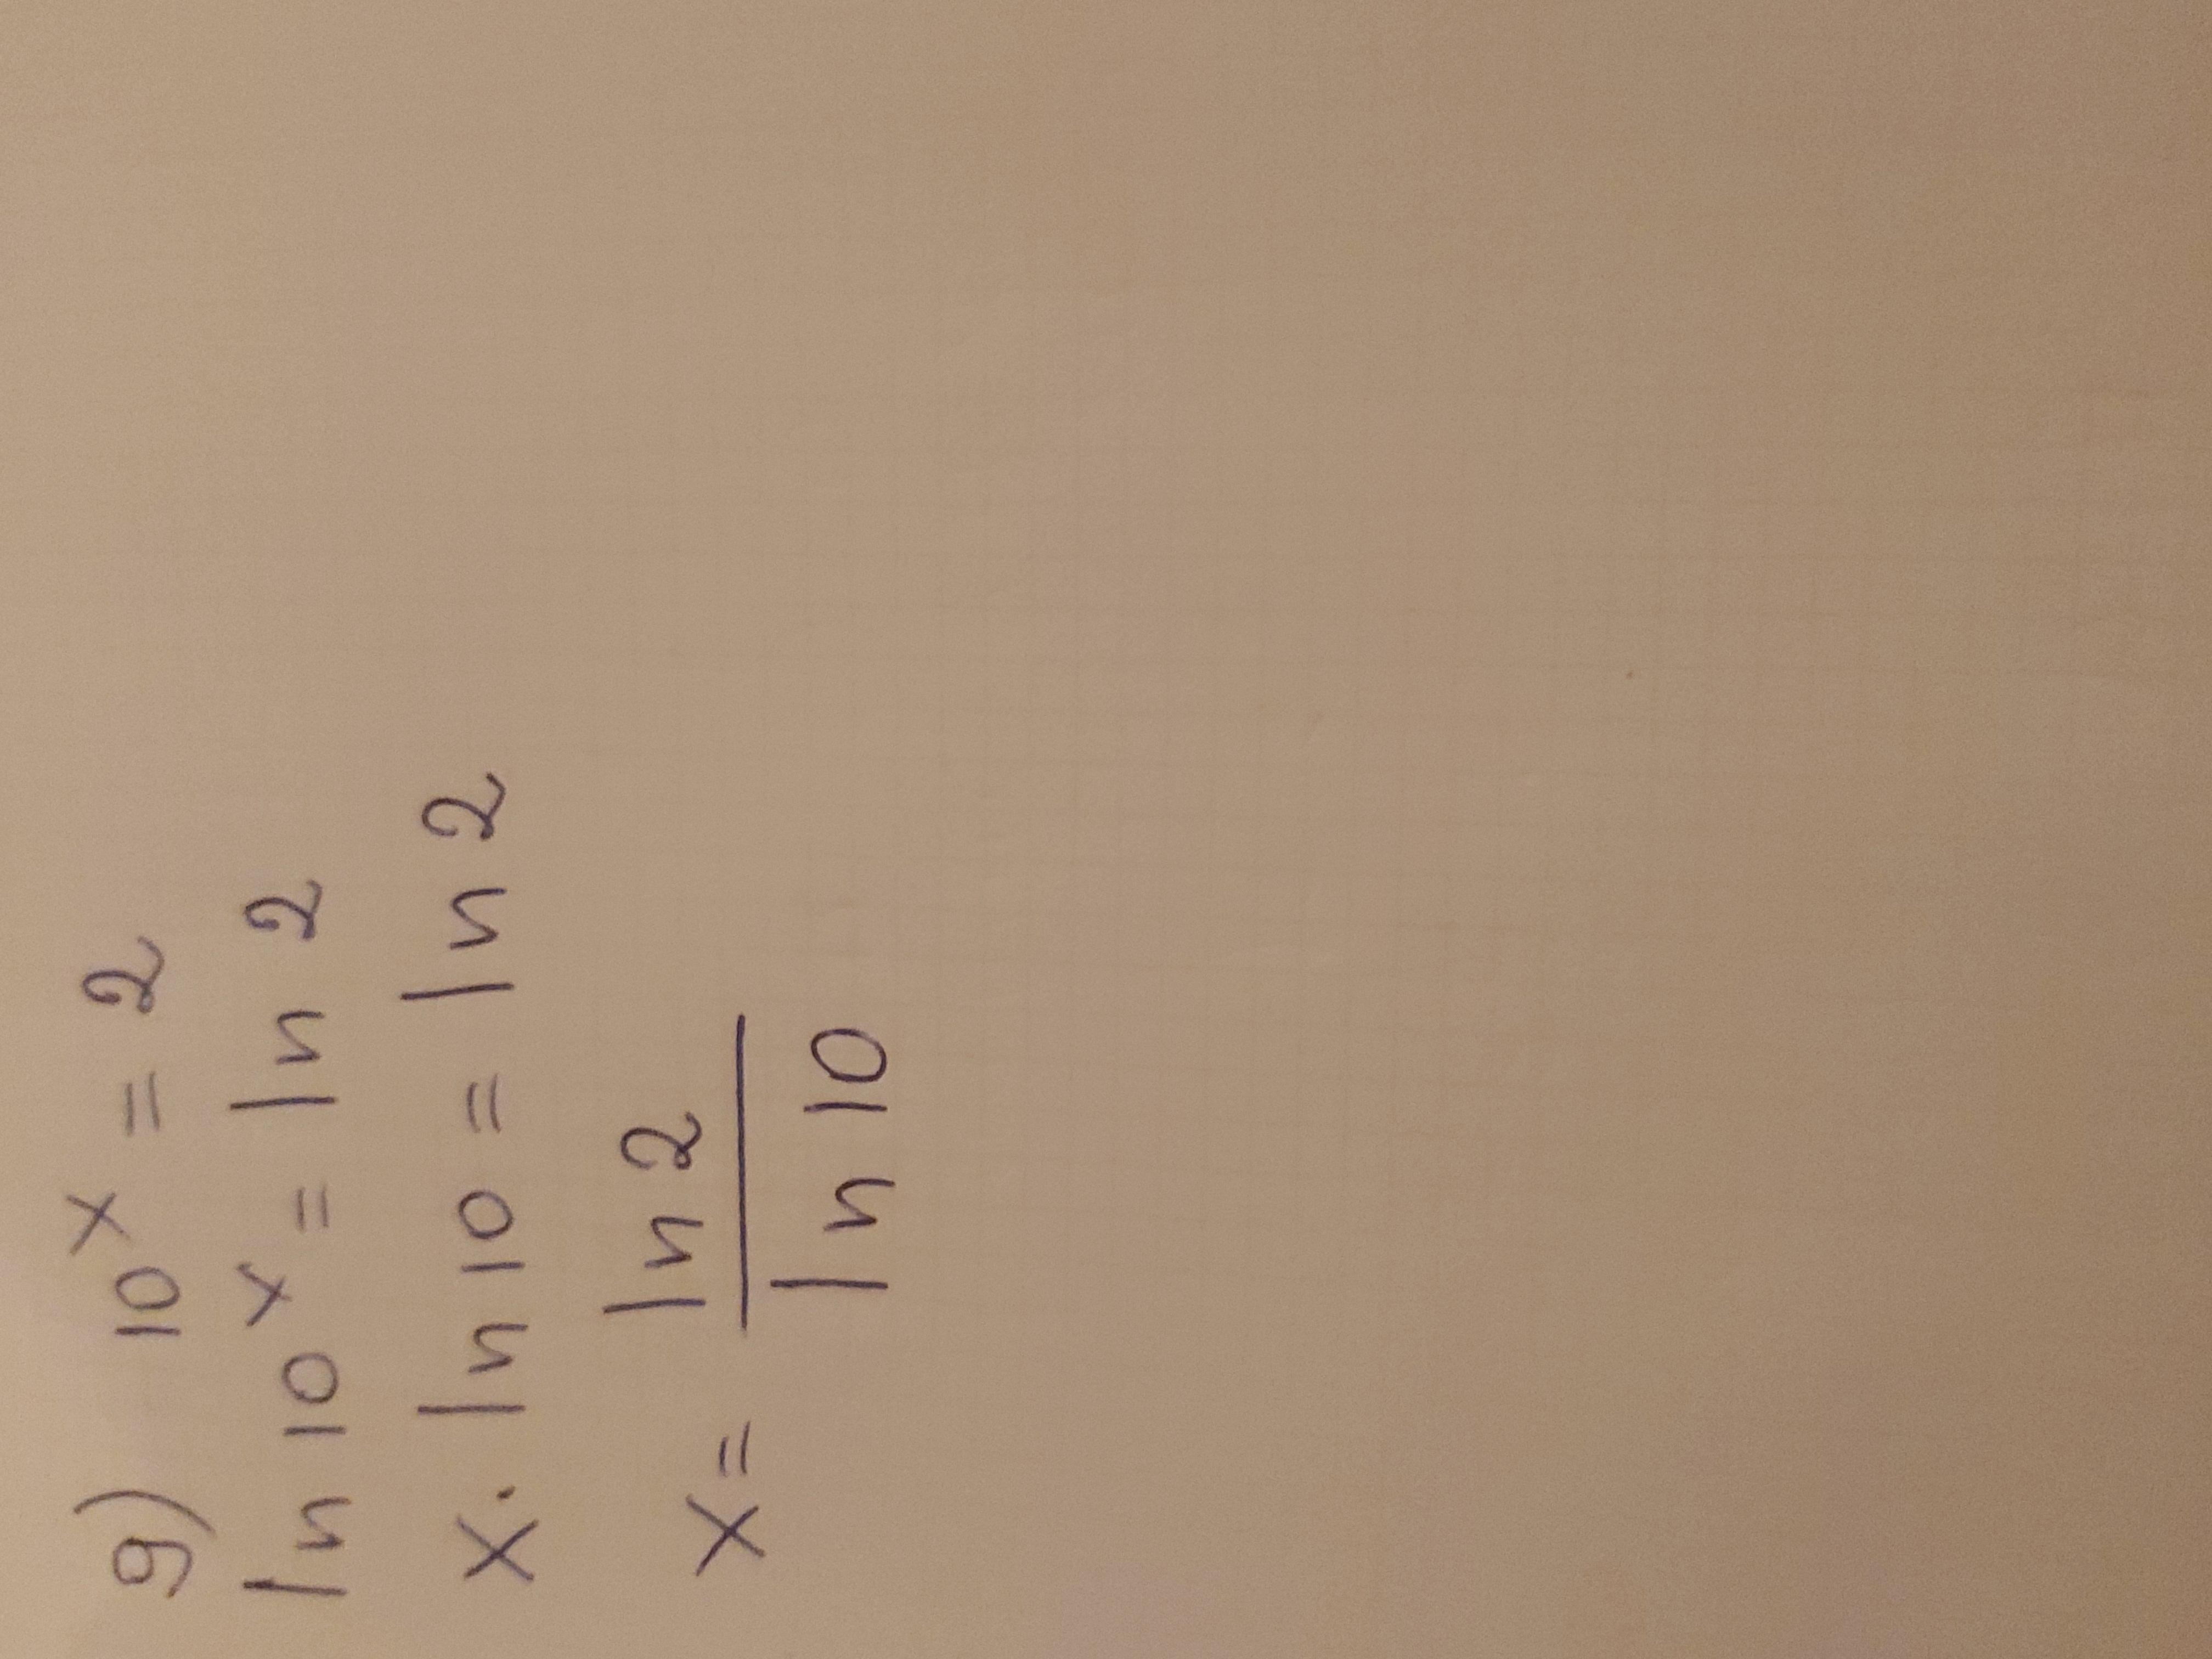 g) 10^x = 2
ln 10^x = ln 2
x · ln 10 = ln 2
x = ln 2 / ln 10